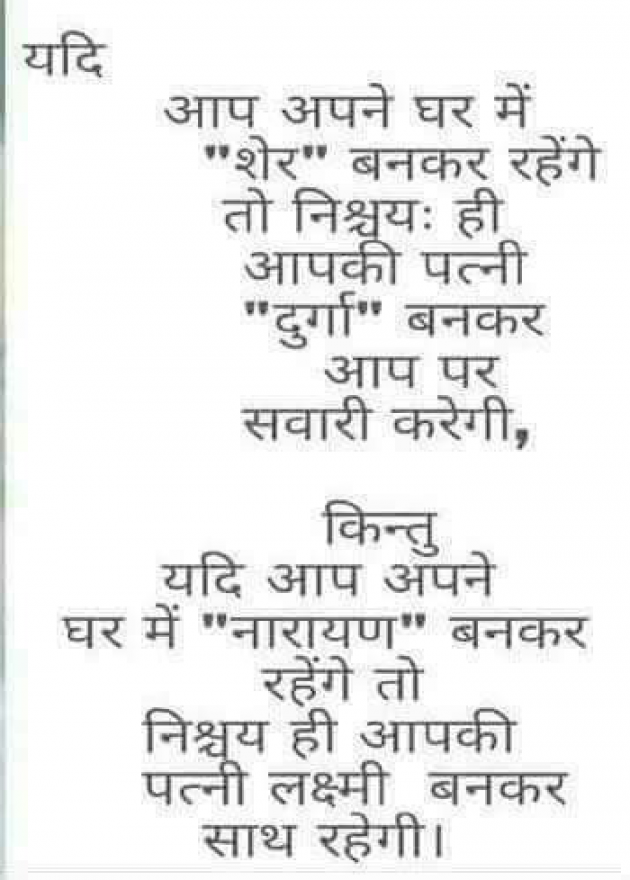 यदि
आप अपने घर में
"शेर" बनकर रहेंगे
तो निश्चयः ही
आपकी पत्नी
"दुर्गा" बनकर
आप पर
सवारी करेगी,
किन्तु
यदि आप अपने
घर में "नारायण" बनकर
रहेंगे तो
निश्चय ही आपकी
पत्नी लक्ष्मी बनकर
साथ रहेगी।